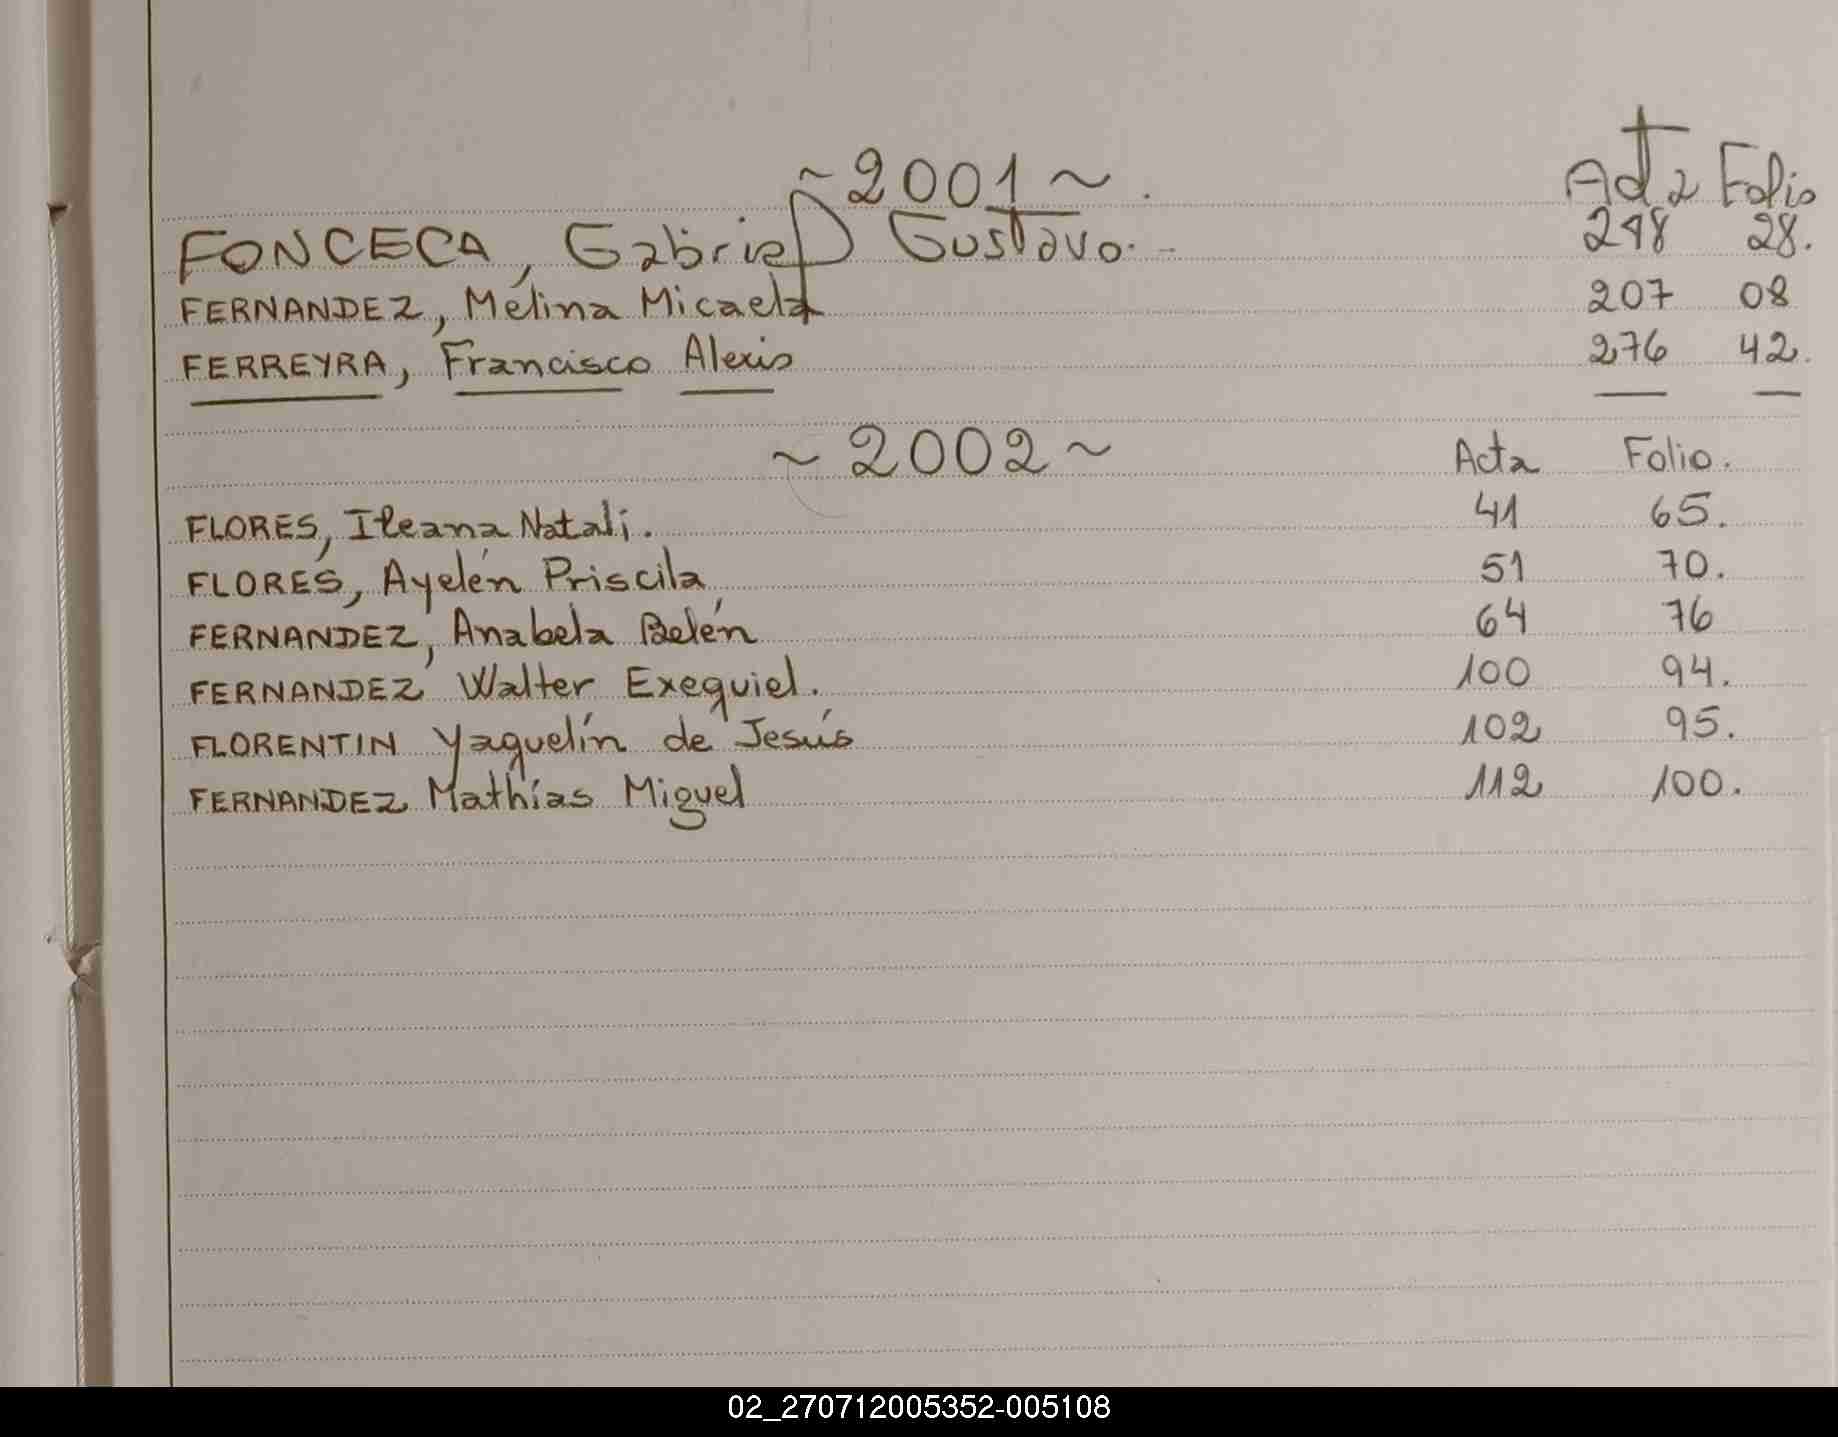 ~2001~. Acta Folio
FONCECA, Gabriel Gustavo.- 248 28.
FERNANDEZ, Melina Micaela 207 08
FERREYRA, Francisco Alexis 276 42.
~2002~ Acta Folio.
FLORES, Ileana Natali. 41 65.
FLORES, Ayelén Priscila 51 70.
FERNANDEZ, Anabela Belén 64 76
FERNANDEZ Walter Exequiel. 100 94.
FLORENTIN Yaquelín de Jesús 102 95.
FERNANDEZ Mathías Miguel 112 100.
02_270712005352-005108